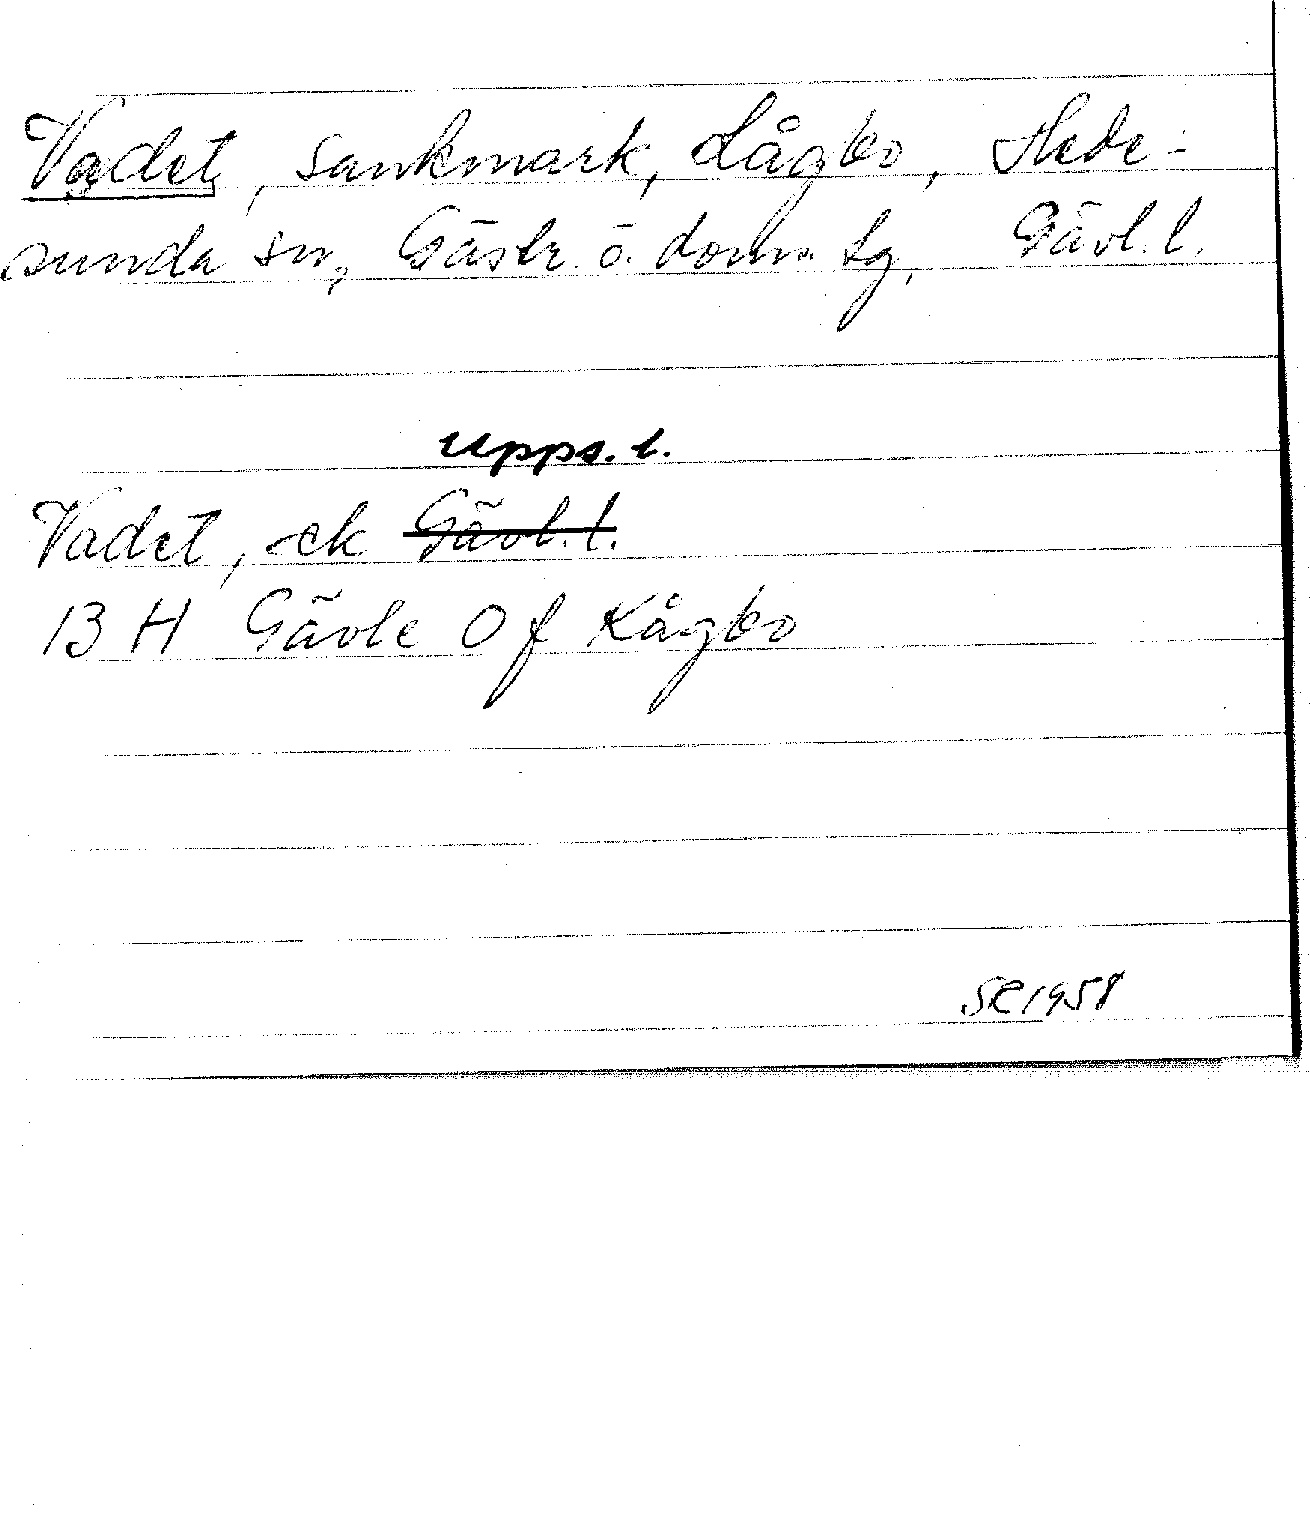 Vadet, sankmark, Lågbo, Hede-
sunda sn, Gästr. ö. doms. tg, Gävl. l.
Upps. l.
Vadet, ek Gävl. l.
13 H Gävle 0 f Kågbo
SR 1958